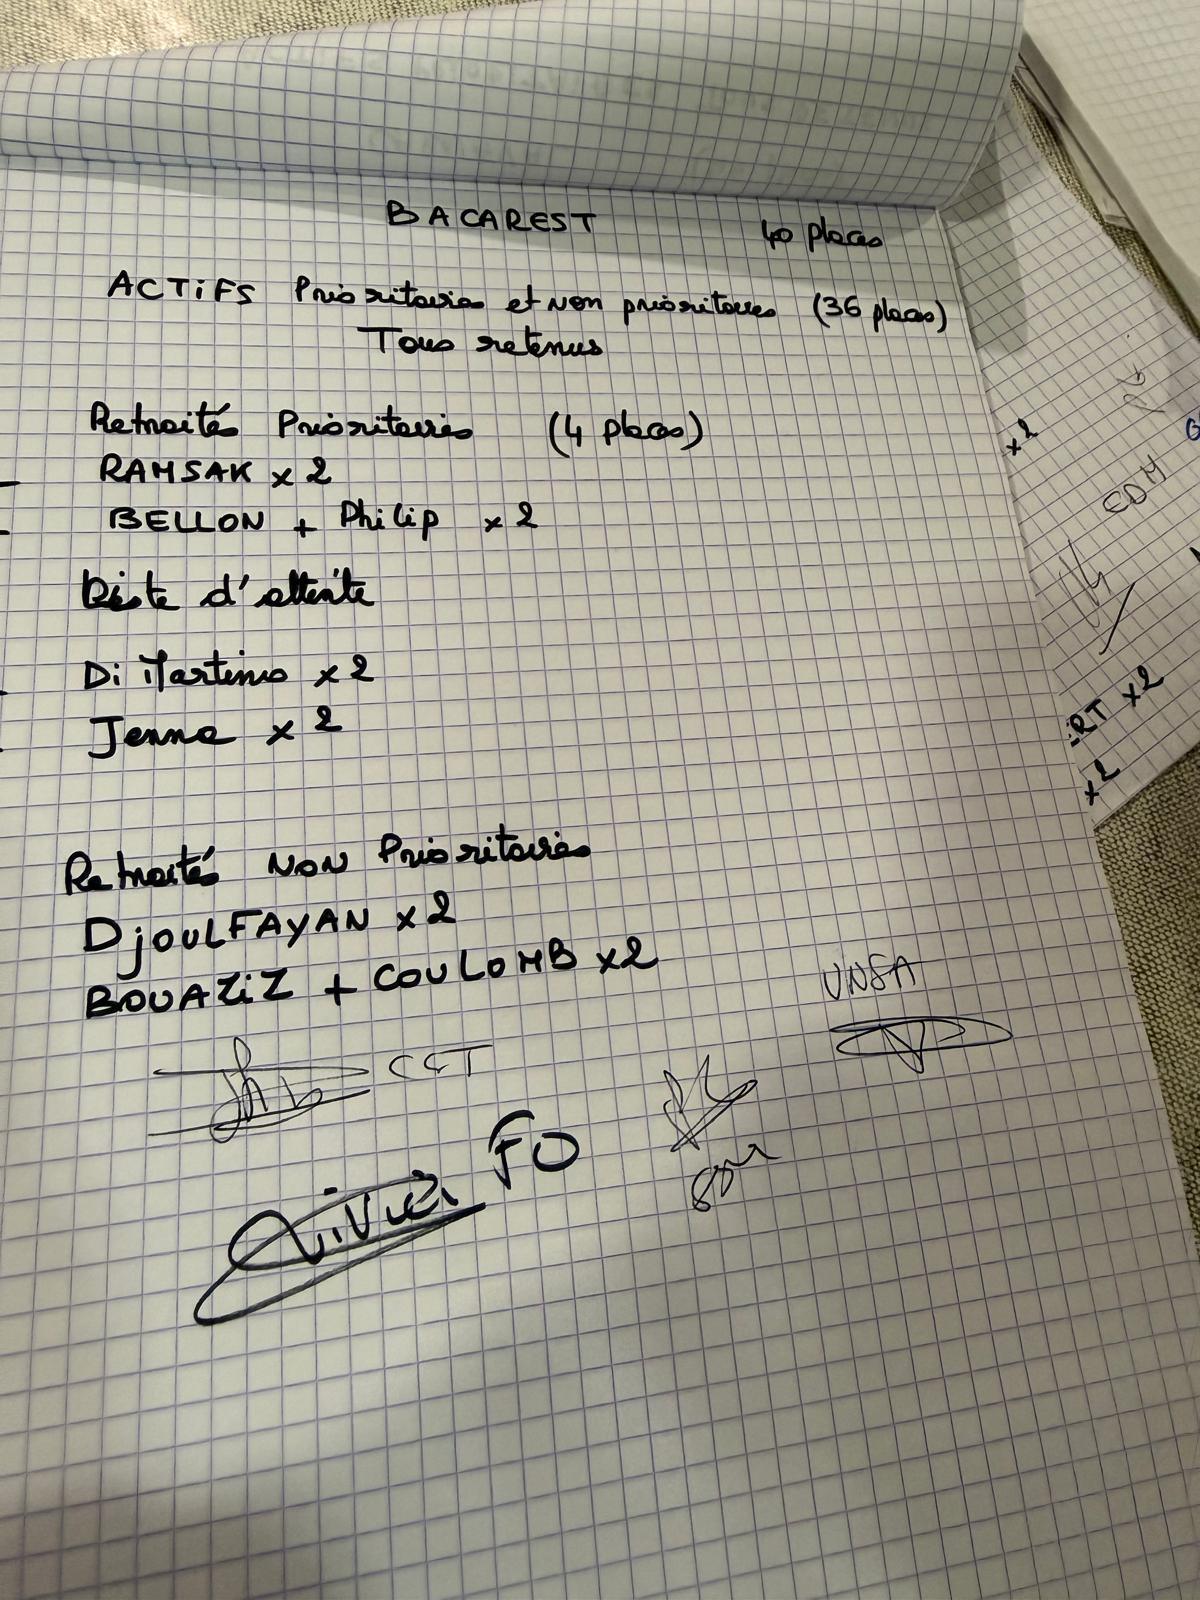 BACAREST 40 places
ACTIFS Prioritaires et Non prioritaires (36 places)
Tous retenus
Retraités Prioritaires (4 places)
RAMSAK x 2
BELLON + Philip x 2
Liste d'attente
Di Martino x 2
Jenna x 2
Retraités NON Prioritaires
DjOULFAYAN x 2
BOUAZIZ + COULOMB x2
UNSA
FO
x2
EDM
x2
x2